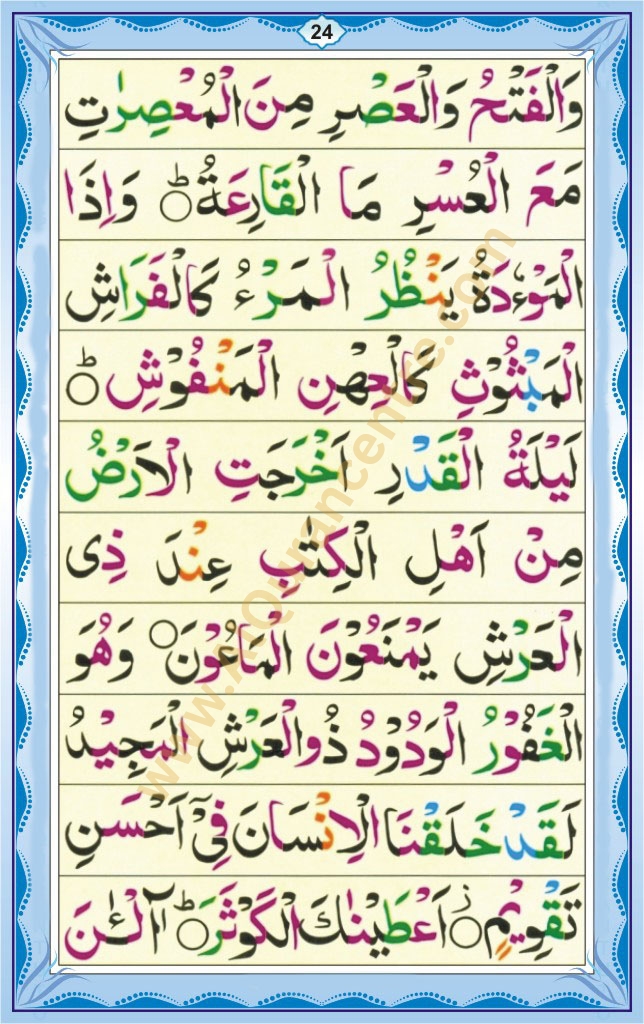 24
وَالْفَتْحُ وَالْعَصْرِ مِنَ الْمُعْصِرٰتِ
مَعَ الْعُسْرِ مَا الْقَارِعَةُ ۝ؕ وَاِذَا
الْمَوْءٗدَةُ يَنْظُرُ الْمَرْءُ كَالْفَرَاشِ
الْمَبْثُوْثِ كَالْعِهْنِ الْمَنْفُوْشِ ۝ؕ
لَيْلَةُ الْقَدْرِ اَخْرَجَتِ الْاَرْضُ
مِنْ اَهْلِ الْكِتٰبِ عِنْدَ ذِى
الْعَرْشِ يَمْنَعُوْنَ الْمَاعُوْنَ ۝ وَهُوَ
الْغَفُوْرُ الْوَدُوْدُ ذُوالْعَرْشِ الْمَجِيْدُ
لَقَدْ خَلَقْنَا الْاِنْسَانَ فِىْۤ اَحْسَنِ
تَقْوِيْمٍ ۝ز اَعْطَيْنٰكَ الْكَوْثَرَ ۝ؕ آلْـٰٔنَ
www.AlQurancentre.com